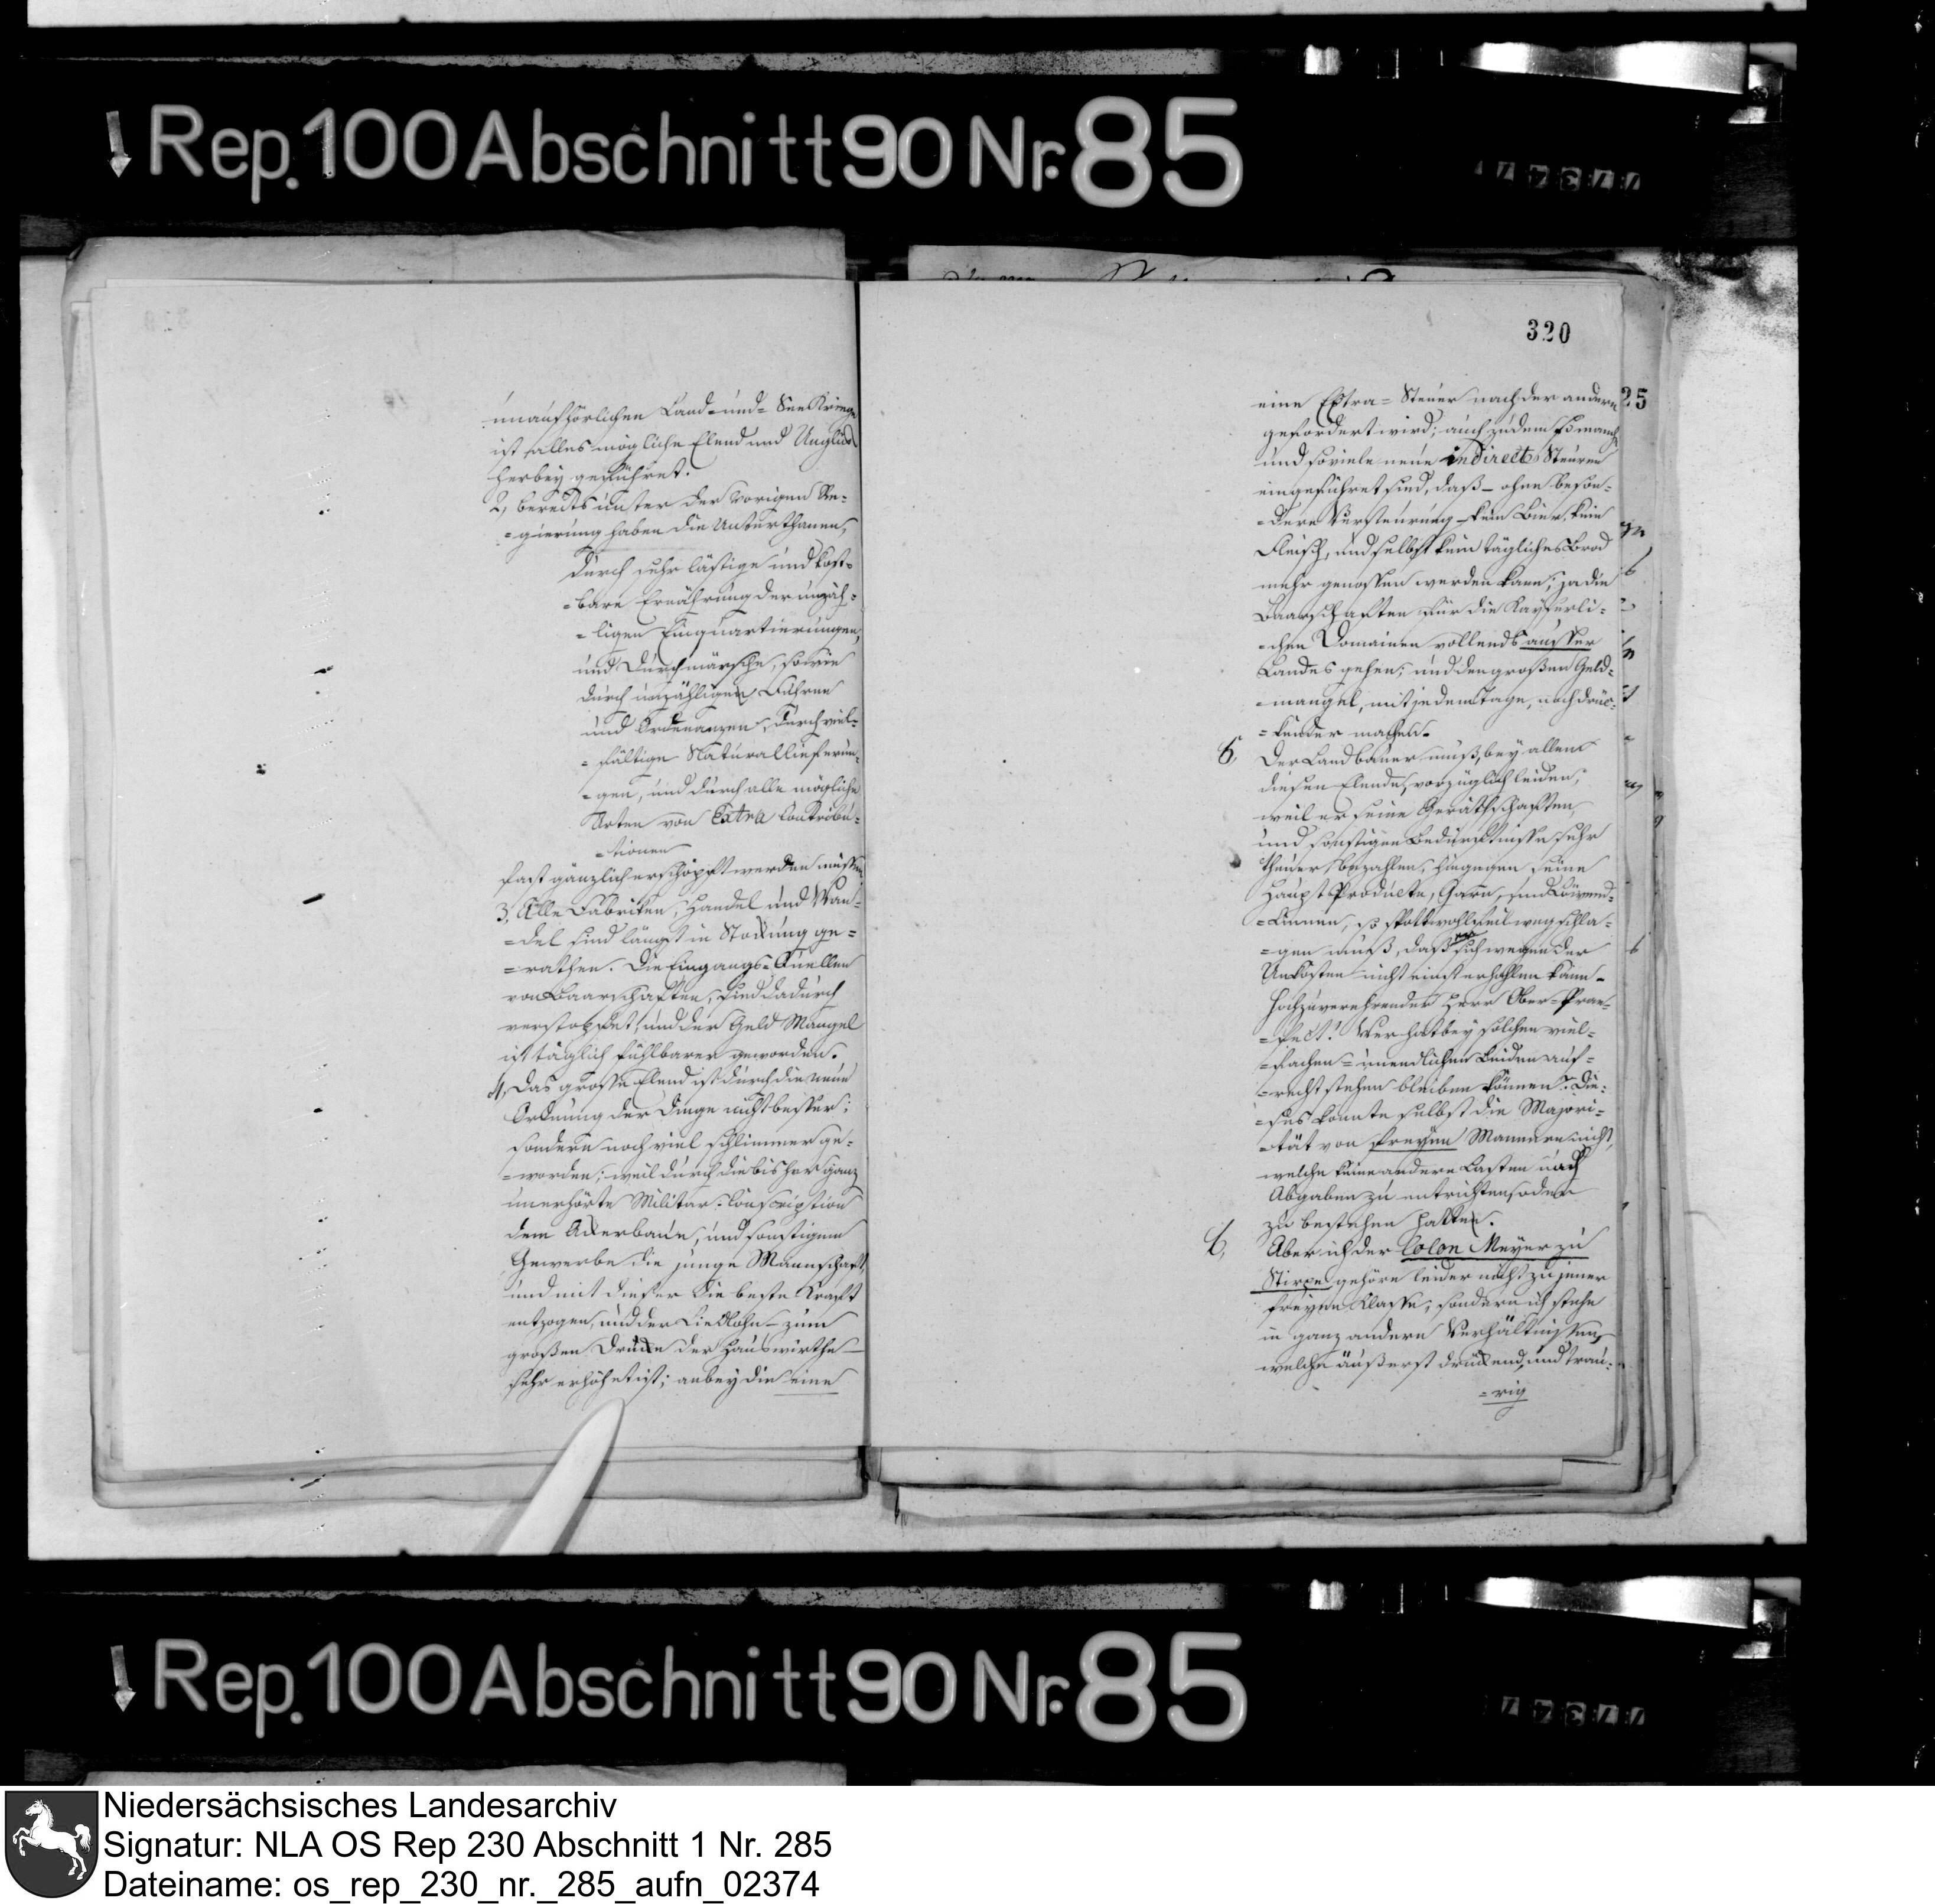 Rep. 100 Abschnitt 90 Nr. 85
unaufhörlichen Land- und- See Kriege
ist alles mögliche Elend und Unglück
herbey geführet.
2, bereits unter der vorigen Re-
=gierung haben die Unterthanen,
durch sehr lästige und kost=
=bare Ernährung der unzäh=
=ligen Einquartierungen,
und Durchmärsche, sowie
durch unzähligen Fuhren
und Ordonanzen, durch viel=
=fältige Naturallieferun=
=gen, und durch alle mögliche
Arten von Extra Contribu=
=tionen
fast gänzlich erschöpft werden müssen
3, Alle Fabriken, Handel und Wan=
=del sind längst in Stockung ge=
=rathen. Die Eingangs=Quellen
von Baarschaften, sind dadurch
verstopfet, und der Geld Mangel
ist täglich fühlbarer geworden.
4, Das grosse Elend ist durch die neue
Ordnung der Dinge nicht besser;
sondern noch viel schlimmer ge=
=worden; weil durch die bisher ganz
unerhörte Militar-Conscription
dem Ackerbaue, und sonstigem
Gewerbe die junge Mannschaft,
und mit dieser die beste Kraft
entzogen, und der Liedlohn - zum
großen Drucke der Hauswirthe -
sehr erhöhet ist; anbey die eine
320
eine Extra= Steuer nach der andern
gefordert wird; auch zudem so manche
und soviele neue indirecte Steuren
eingeführet sind, daß - ohne beson=
=dere Versteurung - kein Bier, kein
Fleisch, und selbst kein tägliches Brod
mehr genossen werden kann; ja die
Baarschaften für die Kayserli=
=chen Domainen vollends ausser
Landes gehen; und den großen Geld=
=mangel, mit jedem Tage, noch drüc=
=kender machen.
5, Der Landbauer muß, bey allem
diesen Elende, vorzüglich leiden,
weil er seine Geräthschaften,
und sonstigen Bedürfnisse sehr
theuer bezahlen, hingegen seine
Haupt Producte, Garn, und Löwend=
=Linnen, so spottwohlfeil wegschla=
=gen muß, daß er sich wegen der
Unkosten nicht einst erhohlen kann -
Hochzuverehrender Herr Ober=Prae=
=fect! Wer hat bey solchen viel=
=fachen= unendlichen Leiden auf=
=recht stehen bleiben können? Die=
=ses konnte selbst die Majori=
=tät von freyen Mannern nicht,
welche keine andere Lasten noch
Abgaben zu entrichten oder
zu bestehen hatten.
6, Aber ich der Colon Meyer zu
Stirpe gehöre leider nicht zu jener
freyen Klasse, sondern ich stehe
in ganz andern Verhältnissen,
welche äußerst drückend, und trau=
=rig
25
Rep. 100 Abschnitt 90 Nr. 85
Niedersächsisches Landesarchiv
Signatur: NLA OS Rep 230 Abschnitt 1 Nr. 285
Dateiname: os_rep_230_nr._285_aufn_02374